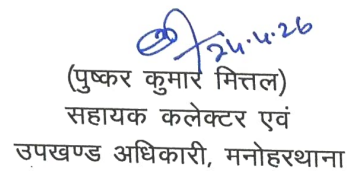 24.4.26
(पुष्कर कुमार मित्तल)
सहायक कलेक्टर एवं
उपखण्ड अधिकारी, मनोहरथाना